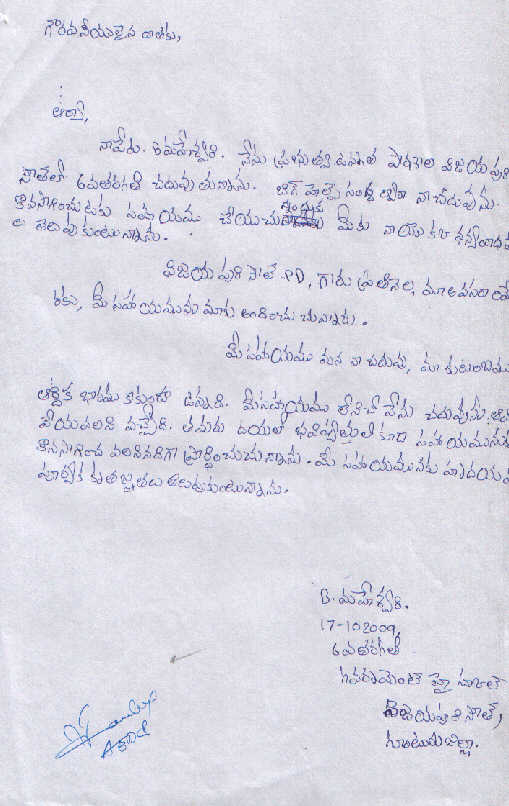 గౌరవనీయులైన
ఆర్యా,
నాపేరు. B మహేశ్వరి. నేను ప్రభుత్వ ఉన్నత పాఠశాల విజయ పురి
సౌత్‌లో 6వతరగతి చదువుతున్నాను. సంస్థ ద్వారా నా చదువును
కొనసాగించుటకు సహాయము చేయుచు మీకు నాయొక్క
తెలుపుకుంటున్నాను.
విజయపురి సౌత్ PD, గారు ప్రతినెల, మా అవసరాల
కొరకు, మీ సహాయమును మాకు అందించుచున్నారు.
మీ సహాయము వలన నా చదువు, మా కుటుంబము
ఆర్థిక భారము కాకుండా ఉన్నది. మీసహాయము లేనిచో నేను చదువును
వేయవలసి వచ్చేది. తమరు దయతో భవిష్యత్తులో కూడా సహాయమును
కొనసాగించ వలసినదిగా ప్రార్థించుచున్నాను. మీ సహాయమునకు హృదయ
పూర్వక కృతజ్ఞతలు తెలుపుకుంటున్నాను.
B. మహేశ్వరి.
17-10 2009,
6వతరగతి
గవర్నమెంట్ హై స్కూల్
విజయపురి సౌత్,
గుంటూరు జిల్లా.